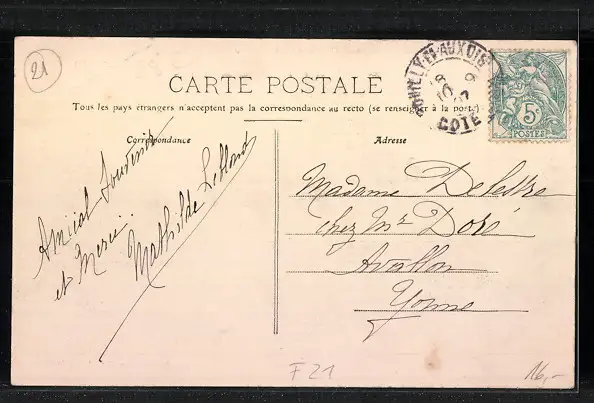 21
CARTE POSTALE
Tous les pays étrangers n'acceptent pas la correspondance au recto (se renseigner à la poste)
Correspondance
Adresse
POUILLY-EN-AUXOIS
8
10 9
07
CÔTE D'OR
5c
POSTES
Amical Souvenir
et Merci.
Mathilde Leblond
Madame Deletre
chez Mr Doré
Avallon
Yonne
F21
16,-